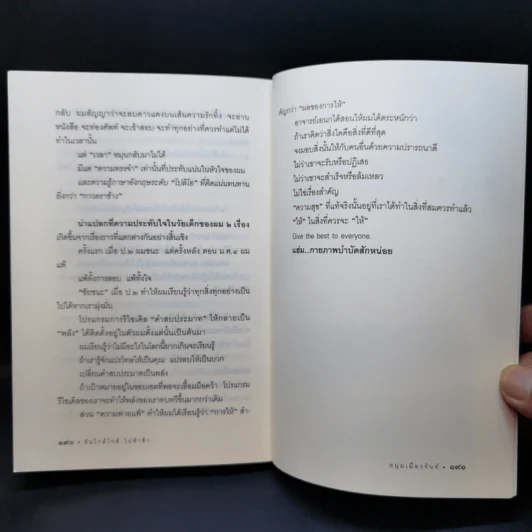 กลับ ผมสัญญาว่าจะลบดาวแดงบนเส้นความรักทิ้ง จะอ่าน
หนังสือ จะท่องศัพท์ จะเข้าสอบ จะทำทุกอย่างที่ควรทำแต่ไม่ได้
ทำในเวลานั้น
แต่ "เวลา" หมุนกลับมาไม่ได้
มีแต่ "ความทรงจำ" เท่านั้นที่ประทับแน่นในหัวใจของผม
และความรู้ภาษาอังกฤษระดับ "โปลิโอ" ที่ติดแน่นทนทาน
ยิ่งกว่า "กาวตราช้าง"
น่าแปลกที่ความประทับใจในวัยเด็กของผม ๒ เรื่อง
เกิดขึ้นจากเรื่องราวที่แตกต่างกันอย่างสิ้นเชิง
ครั้งแรก เมื่อ ป.๒ ผมชนะ แต่ครั้งหลัง ตอน ม.ศ.๔ ผม
แพ้
แพ้ทั้งการสอบ แพ้ทั้งใจ
"ชัยชนะ" เมื่อ ป.๒ ทำให้ผมเรียนรู้ว่าทุกสิ่งทุกอย่างเป็น
ไปได้หากเรามุ่งมั่น
โปรแกรมการรีไซเคิล "คำสบประมาท" ให้กลายเป็น
"พลัง" ได้ติดตั้งอยู่ในตัวผมตั้งแต่นั้นเป็นต้นมา
ผมเรียนรู้ว่าไม่มีอะไรในโลกนี้ยากเกินจะเรียนรู้
ถ้าเรารู้จักแปรวิกฤตให้เป็นคุณ แปรลบให้เป็นบวก
เปลี่ยนคำสบประมาทเป็นพลัง
ถ้าเป้าหมายอยู่ในขอบเขตที่พอจะเอื้อมมือคว้า โปรแกรม
รีไซเคิลของเราจะทำให้พลังของเราทบทวีขึ้นมากกว่าเดิม
ส่วน "ความพ่ายแพ้" ทำให้ผมได้เรียนรู้ว่า "การให้" สำ-
๑๙๐ • ฝันใกล้ใกล้ ไปช้าช้า
คัญกว่า "ผลของการให้"
อาจารย์เอนกได้สอนให้ผมได้ตระหนักว่า
ถ้าเราคิดว่าสิ่งใดคือสิ่งที่ดีที่สุด
จงมอบสิ่งนั้นให้กับคนอื่นด้วยความปรารถนาดี
ไม่ว่าเขาจะรับหรือปฏิเสธ
ไม่ว่าเขาจะสำเร็จหรือล้มเหลว
ไม่ใช่เรื่องสำคัญ
"ความสุข" ที่แท้จริงนั้นอยู่ที่เราได้ทำในสิ่งที่สมควรทำแล้ว
"ให้" ในสิ่งที่ควรจะ "ให้"
Give the best to everyone.
แฮ่ม...กายภาพบำบัดสักหน่อย
หนุ่มเมืองจันท์ • ๑๙๑